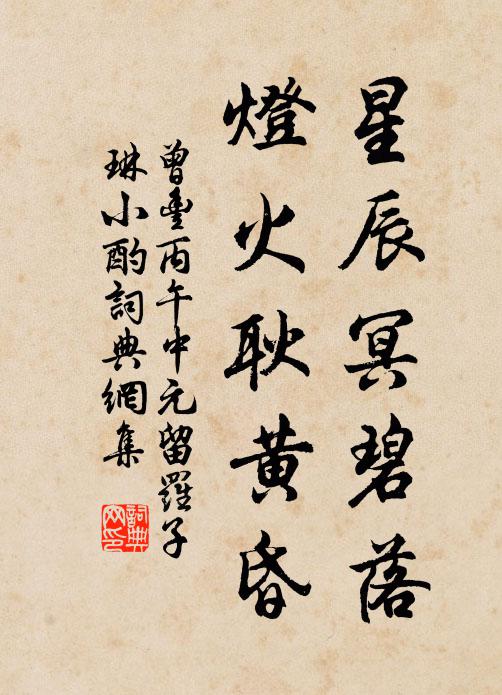 星辰冥碧落
燈火耿黄昏
曾豐丙午中元留羅子
琳小酌詞典網集
詞典网印